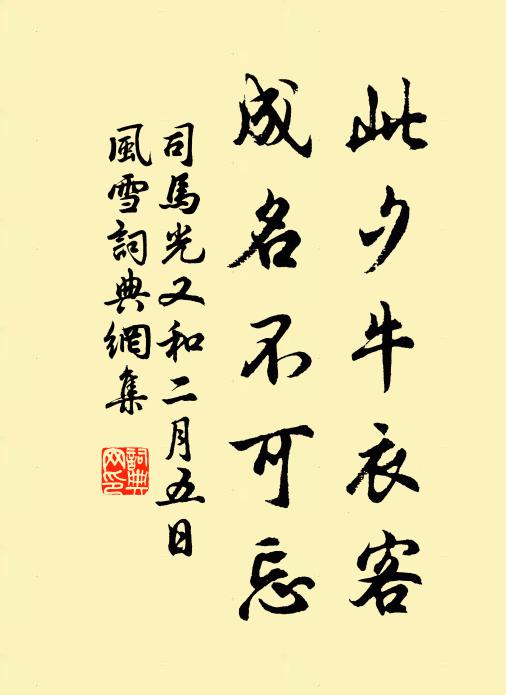 此夕牛衣客
成名不可忘
司馬光又和二月五日
風雪詞典網集
詞典
网印